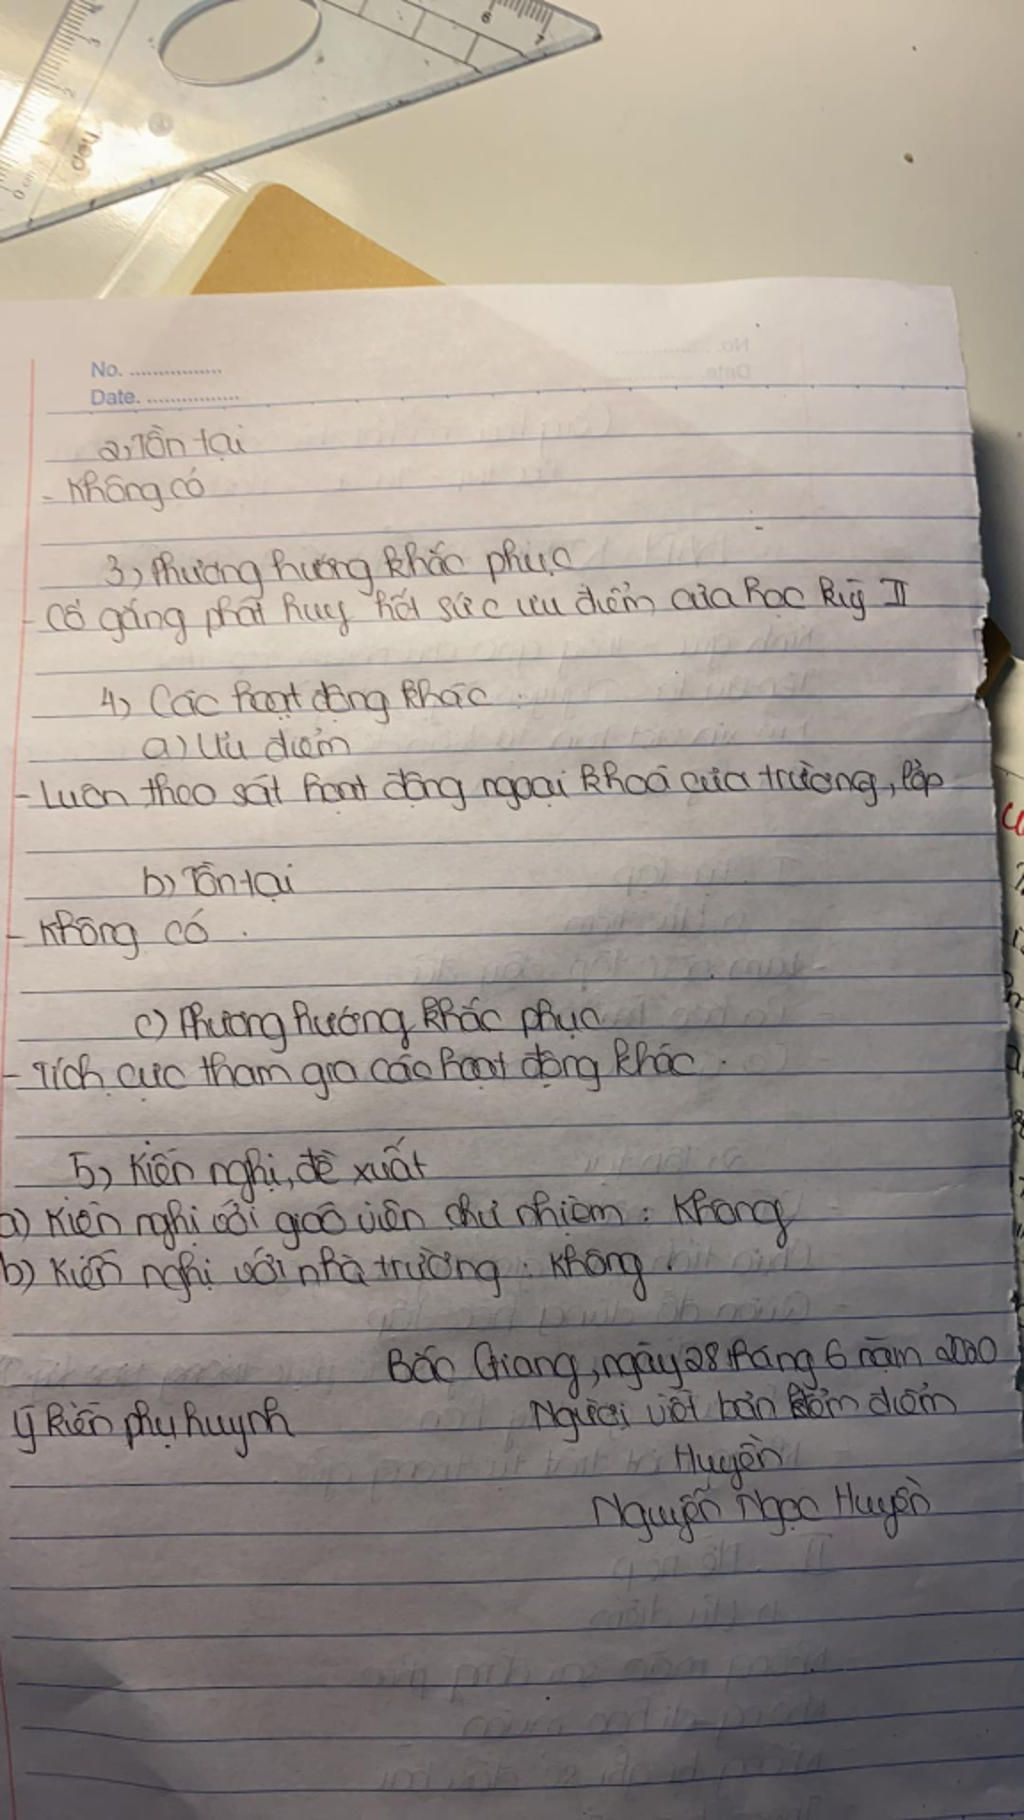 6
7
3
2
0 cm
deli
No. ................
Date. ................
2, Tồn tại
- Không có
3, Phương hướng khắc phục
- Cố gắng phát huy hết sức ưu điểm của học kỳ II
4, Các hoạt động khác
a) Ưu điểm
- Luôn theo sát hoạt động ngoại khoá của trường, lớp
b) Tồn tại
- Không có .
c) Phương hướng khắc phục
- Tích cực tham gia các hoạt động khác .
5, Kiến nghị, đề xuất
a) Kiến nghị với giáo viên chủ nhiệm : Không
b) Kiến nghị với nhà trường : Không .
Bắc Giang, ngày 28 tháng 6 năm 2020
Ý kiến phụ huynh
Người viết bản kiểm điểm
Huyền
Nguyễn Ngọc Huyền